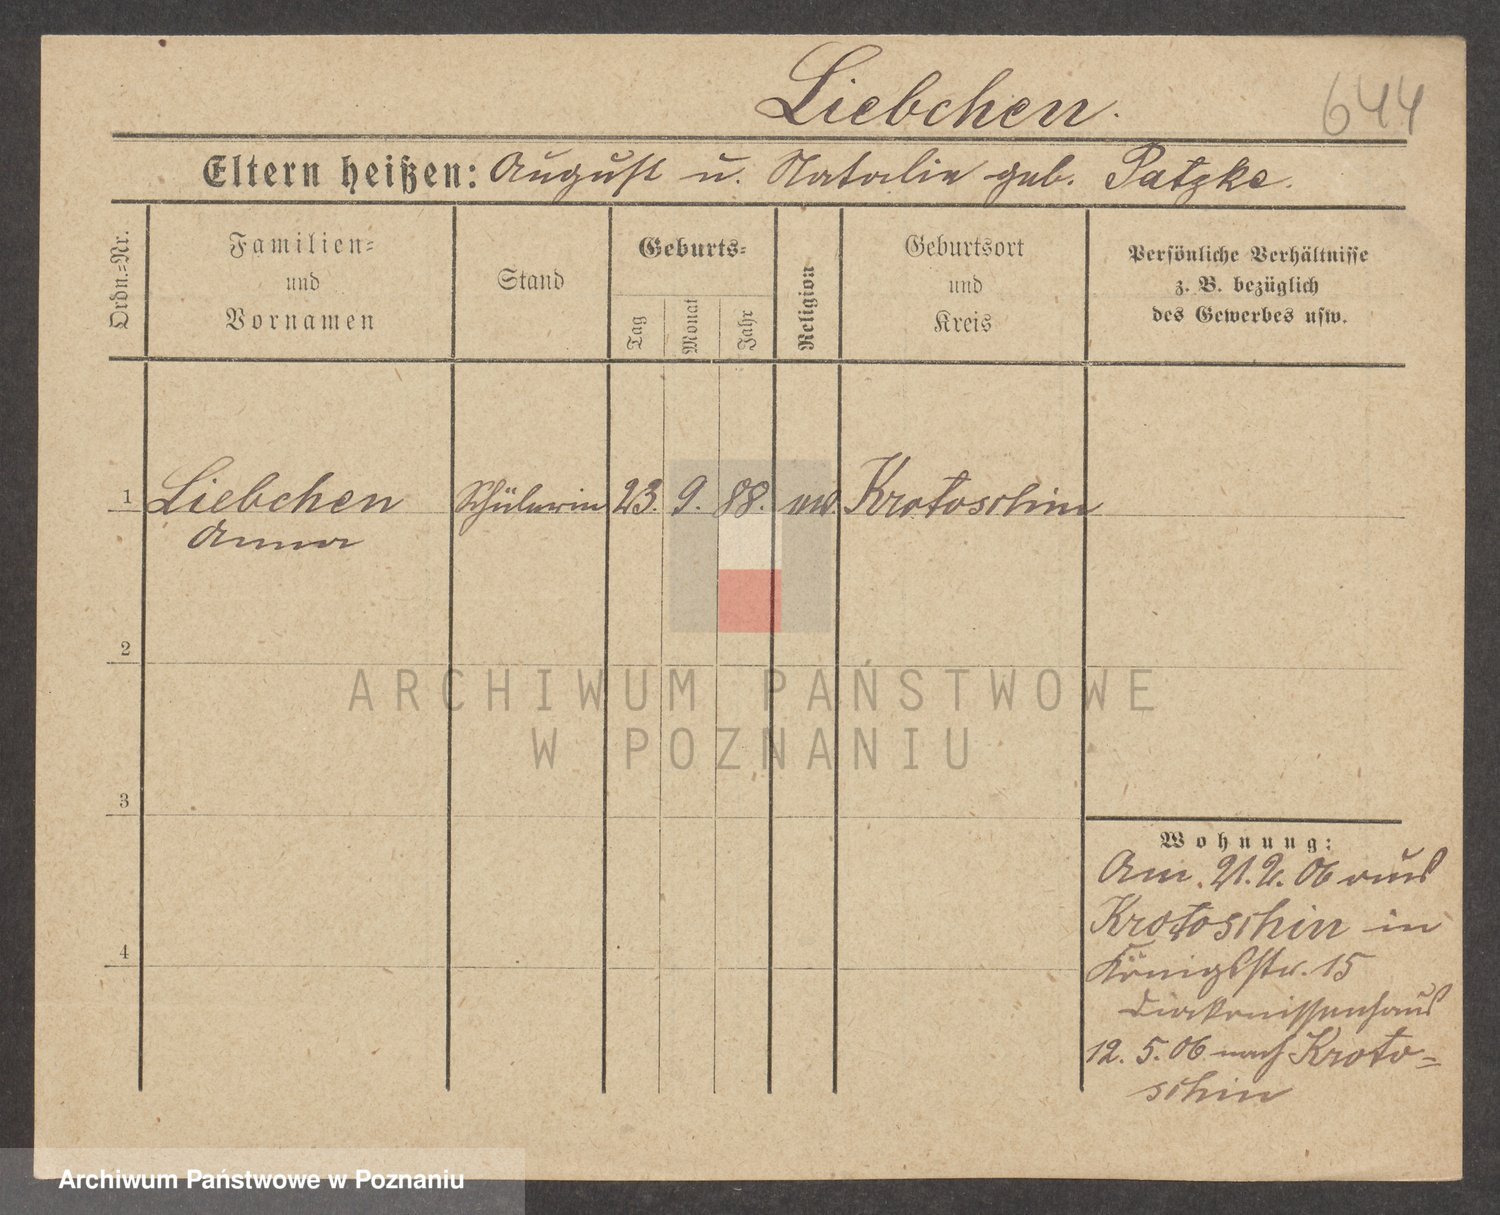 Liebchen.
644
Eltern heißen: August u. Natalie geb. Patzke.
Ordn.=Nr.
Familien=
und
Vornamen
Stand
Geburts=
Tag
Monat
Jahr
Religion
Geburtsort
und
Kreis
Persönliche Verhältnisse
z. B. bezüglich
des Gewerbes usw.
1 Liebchen Schülerin 23. 9. 88. ev. Krotoschin
Anna
2
3
4
Wohnung:
Am 21.2.06 aus
Krotoschin in
Königsstr. 15
Diakonissenhaus
12. 5. 06 nach Kroto=
schin
ARCHIWUM PAŃSTWOWE
W POZNANIU
Archiwum Państwowe w Poznaniu